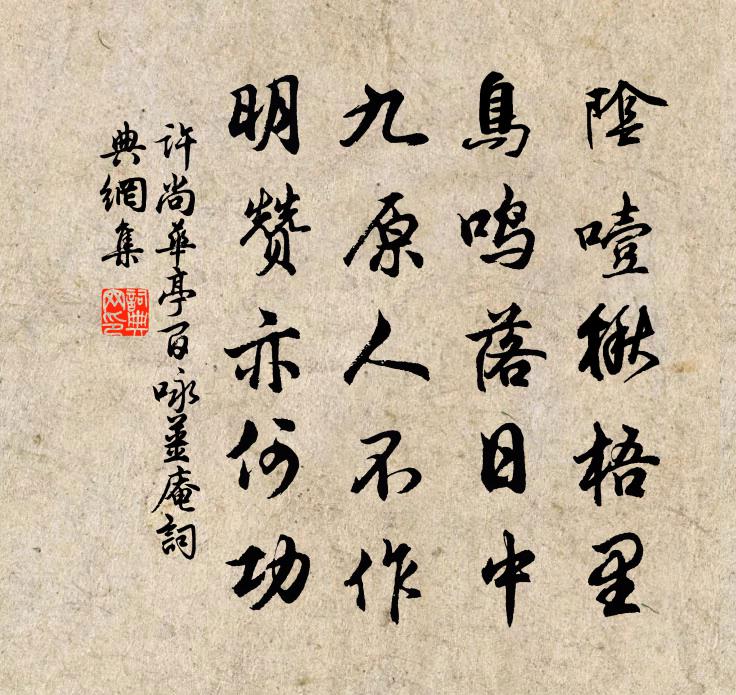 陰噎楸梧里
鳥鳴落日中
九原人不作
明贊亦何功
許尚華亭百咏薑庵詞
典網集
詞典網印